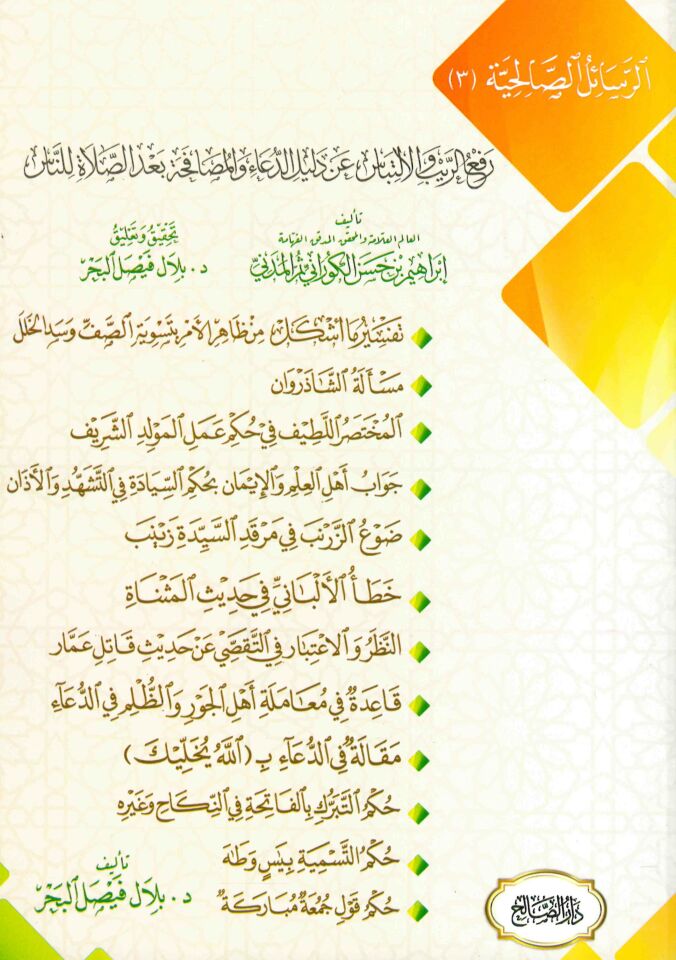 الرَّسَائِلُ الصَّالِحِيَّة (٣)
رَفْعُ الرَّيْبِ وَالِالْتِبَاسِ عَنْ دَلِيلِ الدُّعَاءِ وَالمُصَافَحَةِ بَعْدَ الصَّلَاةِ لِلنَّاسِ
تأليف
العالم العلامة والمحقق المدقق الفهامة
إِبْرَاهِيمَ بْنِ حَسَنِ الكُورَانِيِّ ثُمَّ المَدَنِيِّ
تَحْقِيقُ وَتَعْلِيقُ
د. بِلَال فَيْصَل البَحْر
تَفْسِيرُ مَا أَشْكَلَ مِنْ ظَاهِرِ الأَمْرِ بِتَسْوِيَةِ الصَّفِّ وَسَدِّ الخَلَلِ
مَسْأَلَةُ الشَّاذَرْوَان
المُخْتَصَرُ اللَّطِيف فِي حُكْمِ عَمَلِ المَوْلِدِ الشَّرِيف
جَوَابُ أَهْلِ العِلْمِ وَالإِيمَان بِحُكْمِ السِّيَادَةِ فِي التَّشَهُّدِ وَالأَذَان
ضَوْعُ الزَّرْنَبِ فِي مَرْقَدِ السَّيِّدَةِ زَيْنَبَ
خَطَأُ الأَلْبَانِيِّ فِي حَدِيثِ المَثْنَاةِ
النَّظَرُ وَالِاعْتِبَار فِي التَّقَصِّي عَنْ حَدِيثِ قَاتِلِ عَمَّار
قَاعِدَةٌ فِي مُعَامَلَةِ أَهْلِ الجَوْرِ وَالظُّلْمِ فِي الدُّعَاءِ
مَقَالَةٌ فِي الدُّعَاءِ بِـ (اللَّهُ يُخَلِّيْكَ)
حُكْمُ التَّبَرُّكِ بِالفَاتِحَةِ فِي النِّكَاحِ وَغَيْرِهِ
حُكْمُ التَّسْمِيَةِ بِيس وَطَهَ
حُكْمُ قَوْلِ جُمُعَةٌ مُبَارَكَةٌ
تأليف
د. بِلَال فَيْصَل البَحْر
دَارُ الصَّالِح